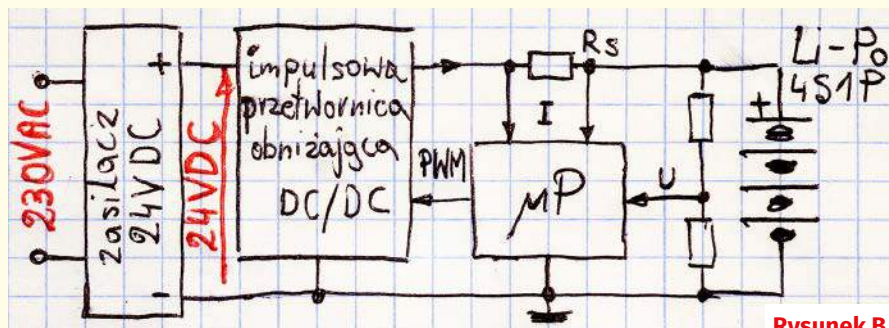 230VAC
+
zasilacz
24VDC
-
24VDC
impulsowa
przetwornica
obniżająca
DC/DC
PWM
I
Rs
μP
U
Li-Po
4S1P
+
Rysunek B